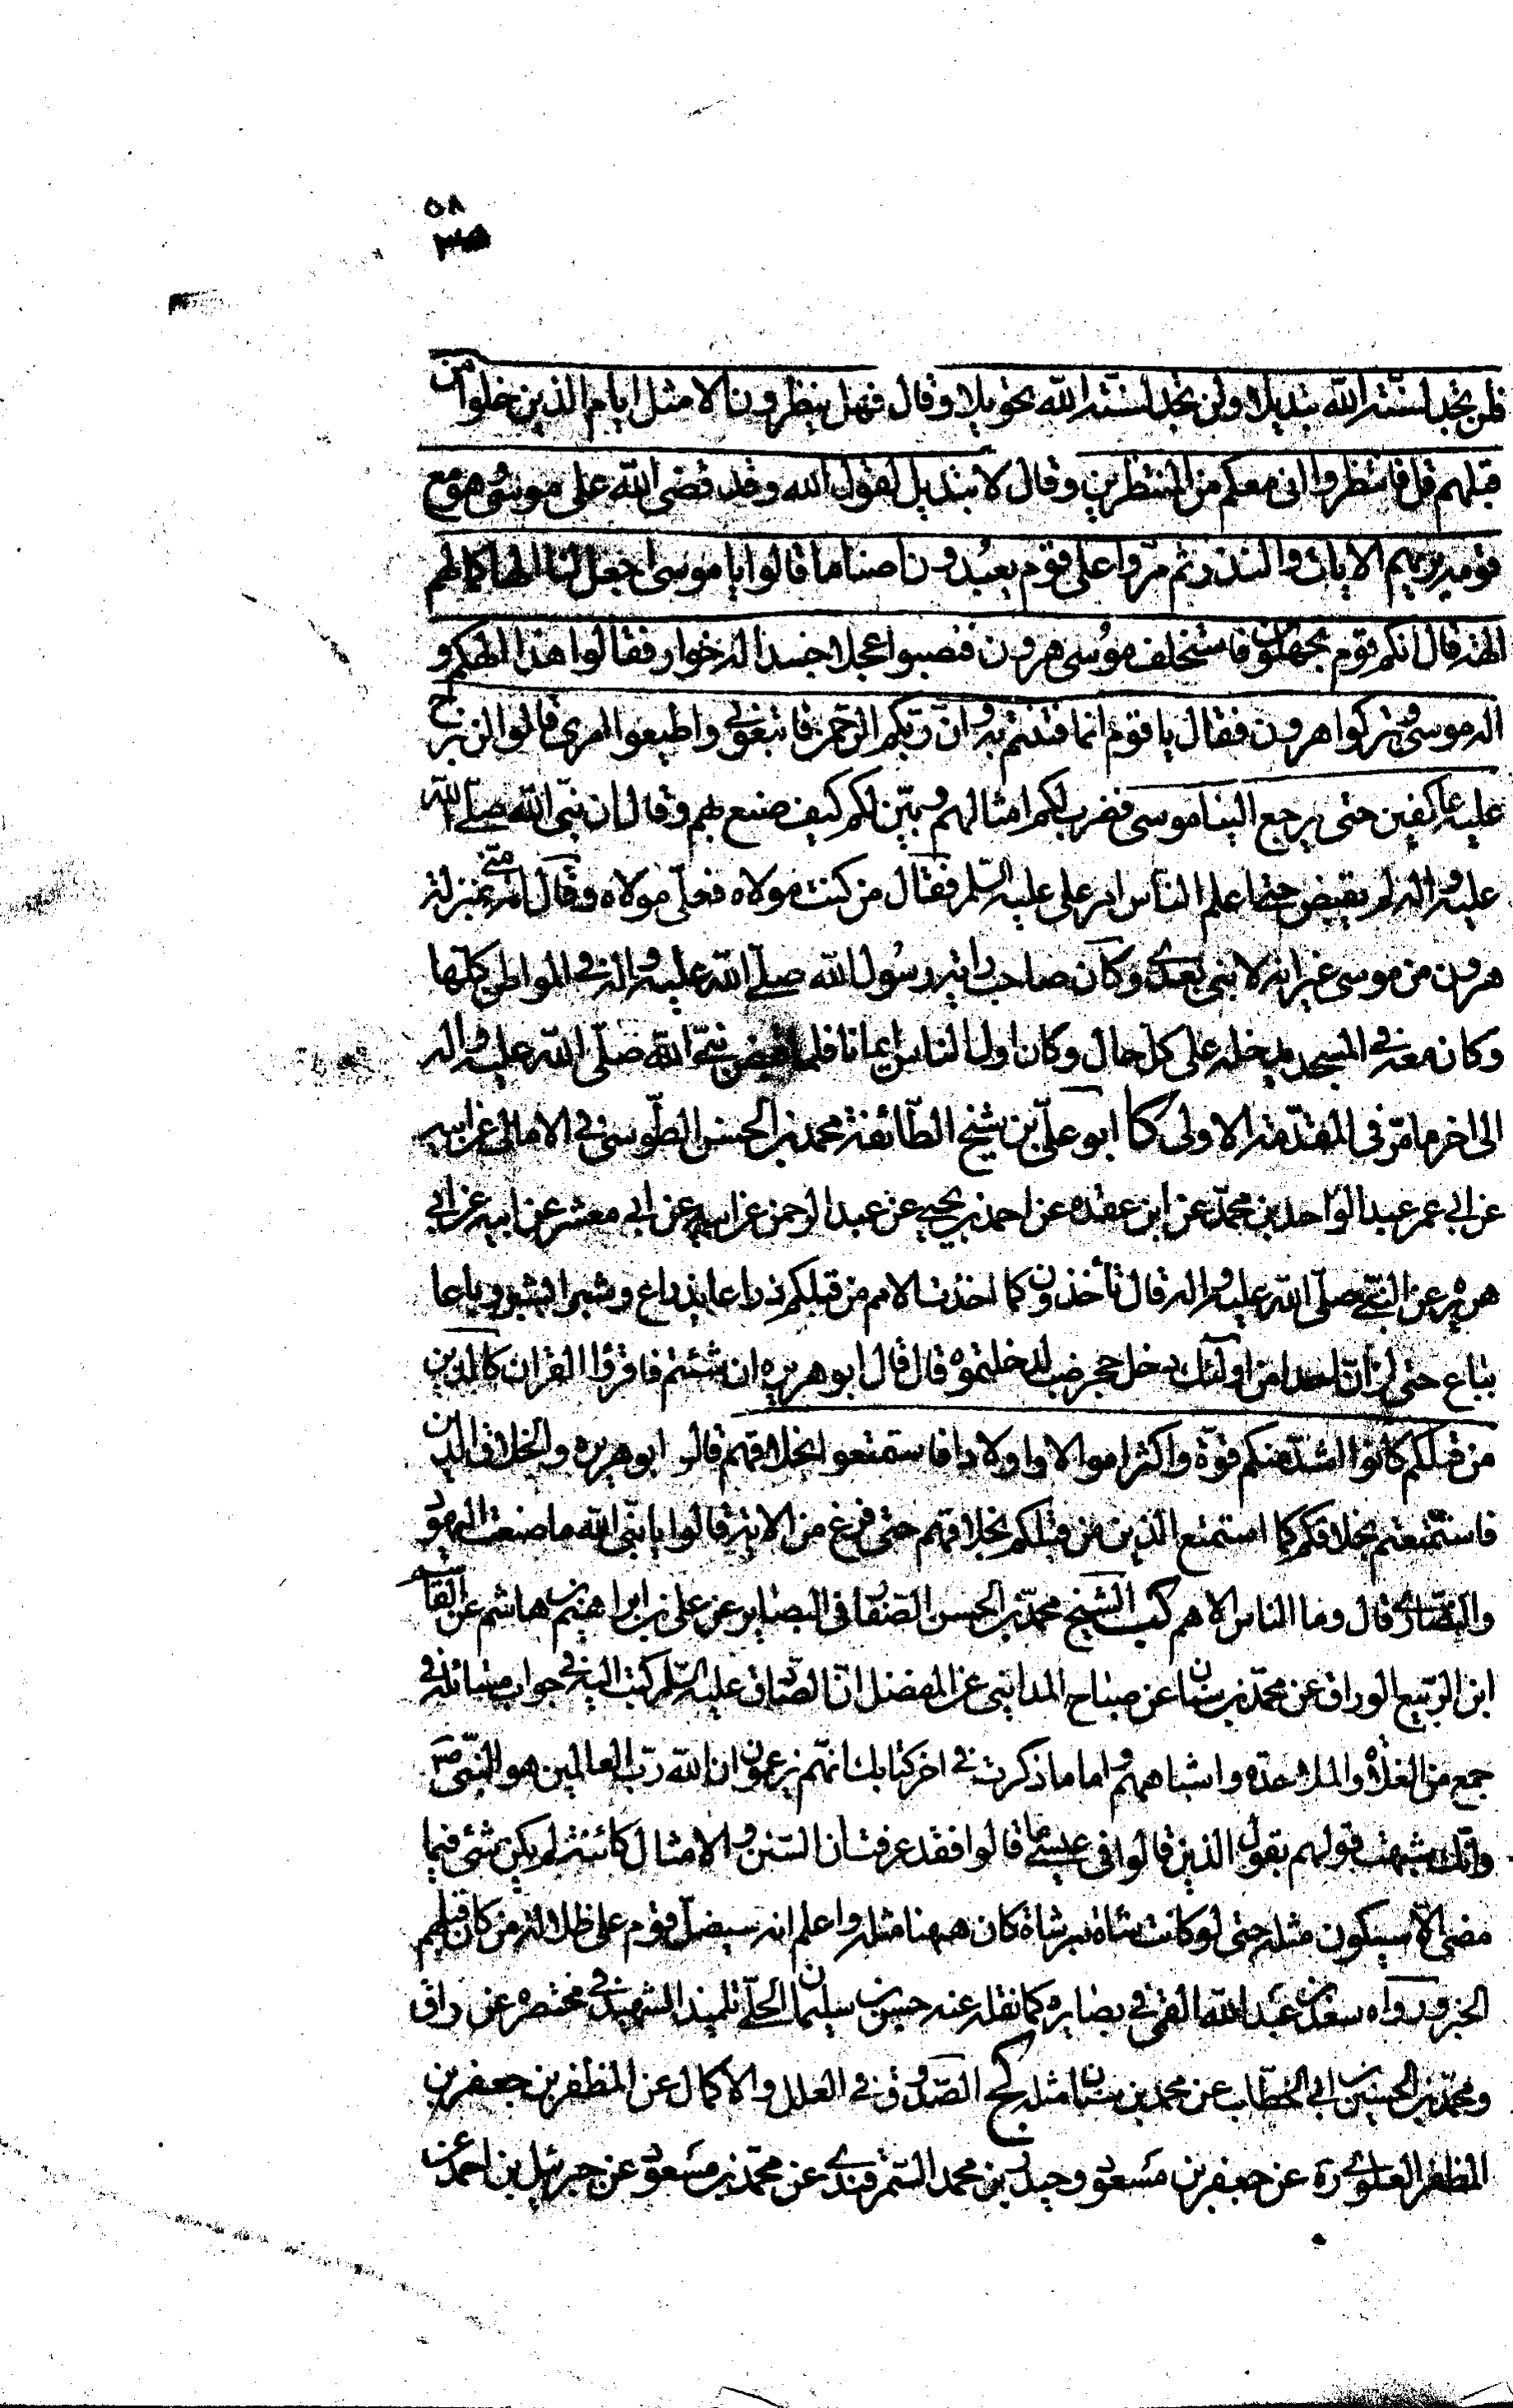 ٥٨
فلن تجد لسنة الله تبديلا ولن تجد لسنة الله تحويلا وقال فهل ينظرون الا مثل ايام الذين خلوا من
قبلهم قل فانتظروا انى معكم من المنتظرين وقال لا تبديل لقول الله وقد قضى الله على موسى وهو مع
قومه يريهم الايات والنذر ثم مرّوا على قوم يعبدون اصناما قالوا يا موسى اجعل لنا الها كما لهم
الهة قال انكم قوم تجهلون فاستخلف موسى هرون فنصبوا عجلا جسدا له خوار فقالوا هذا الهكم و
اله موسى وتركوا هرون فقال يا قوم انما فتنتم به وان ربكم الرحمن فاتبعونى واطيعوا امرى قالوا لن نبرح
عليه عاكفين حتى يرجع الينا موسى فضرب لكم امثالهم وبيّن لكم كيف صنع بهم وقال ان نبى الله صلى الله
عليه واله لم يقبض حتى اعلم الناس امر على عليه السلم فقال من كنت مولاه فعلى مولاه وقال انه منى بمنزلة
هرون من موسى غير انه لا نبى بعدى وكان صاحب راية رسول الله صلى الله عليه واله فى المواطن كلها
وكان معه فى المسجد يدخله على كل حال وكان اول الناس ايمانا فلما قبض نبى الله صلى الله عليه واله
الى اخر ما مرّ فى المقدمة الاولى كا ابو علىّ بن شيخ الطائفة محمد بن الحسن الطوسى فى الامالى عن ابيه
عن ابى عمر عبد الواحد بن محمد عن ابن عقده عن احمد بن يحيى عن عبد الرحمن عن ابيه عن ابى معشر عن ابيه عن ابى
هريره عن النبى صلى الله عليه واله قال تأخذون كما اخذت الامم من قبلكم ذراعا بذراع وشبرا بشبر وباعا
بباع حتى لو ان احدا من اولئك دخل حجر ضب لدخلتموه قال قال ابو هريره ان شئتم فاقرؤا القران كالذين
من قبلكم كانوا اشد منكم قوة واكثر اموالا واولادا فاستمتعوا بخلاقهم قال ابو هريره والخلاق الدين
فاستمتعتم بخلاقكم كما استمتع الذين من قبلكم بخلاقهم حتى فرغ من الاية قالوا يا نبى الله ما صنعت اليهود
والنصارى قال وما الناس الا هم كب الشيخ محمد بن الحسن الصفار فى البصاير عن على بن ابراهيم بن هاشم عن القاسم
ابن الربيع الوراق عن محمد بن سنان عن صباح المداينى عن المفضل ان الصادق عليه السلم كتب اليه فى جواب مسائله فى
جمع من الغلاة والملاحدة واشباههم واما ما ذكرت فى اخر كتابك انهم يزعمون ان الله رب العالمين هو النبى ص
وانك شبهت قولهم بقول الذين قالوا فى عيسى ما قالوا فقد عرفت ان السنن والامثال كائنة لم يكن شئ فيما
مضى الا سيكون مثله حتى لو كانت شاة برشاة كان ههنا مثله واعلم انه سيضل قوم على ضلالة من كان قبلهم
الخبر ورواه سعد بن عبد الله القمى فى بصايره كما نقله عنه حسن بن سليمان الحلى تلميذ الشهيد فى مختصره عن
ومحمد بن الحسين بن ابى الخطاب عن محمد بن سنان مثله كج الصدوق فى العلل والاكمال عن المظفر بن جعفر بن
المظفر العلوى ره عن جعفر بن مسعود وحيدر بن محمد السمرقندى عن محمد بن مسعود عن جبرئيل بن احمد عن